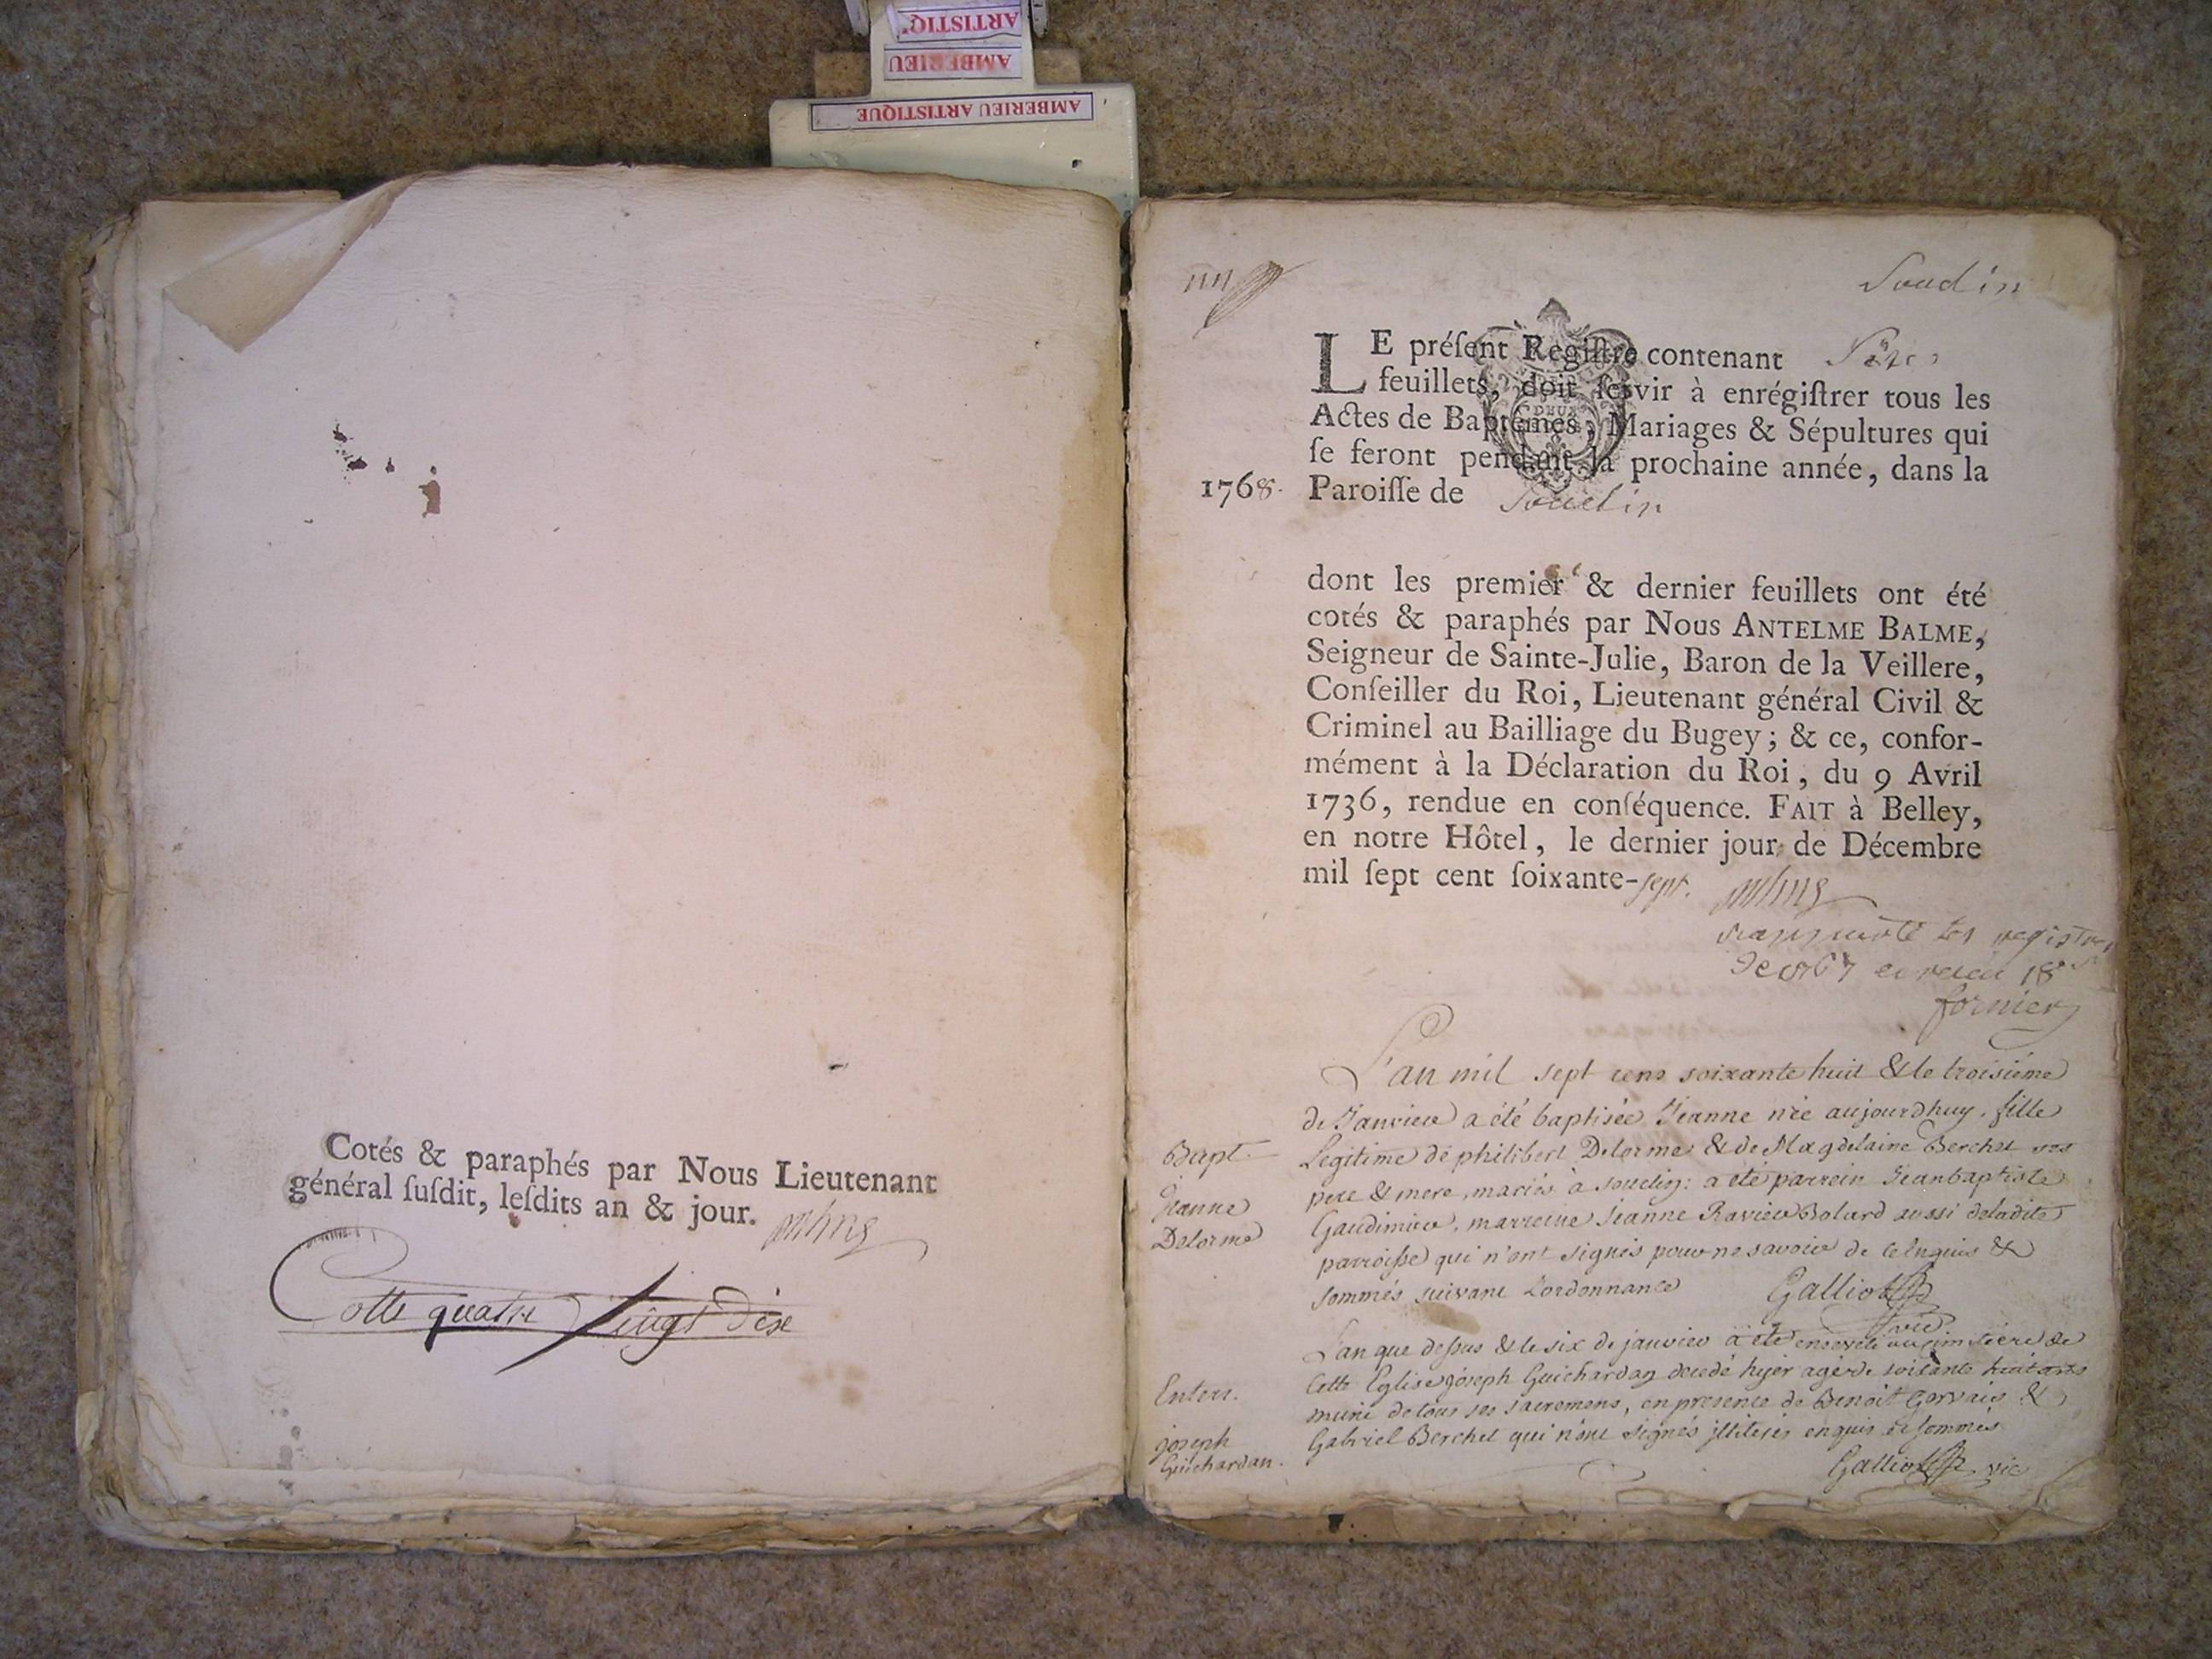 ARTISTIQ
AMBERIEU
AMBERIEU ARTISTIQUE
Cotés & paraphés par Nous Lieutenant
général ſuſdit, leſdits an & jour.
Cotte quatre vingt dix
Soudin
LE préſent Regiſtre contenant
feuillets, doit ſervir à enrégiſtrer tous les
Actes de Baptêmes, Mariages & Sépultures qui
ſe feront pendant la prochaine année, dans la
1768. Paroiſſe de Souclin
dont les premier & dernier feuillets ont été
cotés & paraphés par Nous ANTELME BALME,
Seigneur de Sainte-Julie, Baron de la Veillere,
Conſeiller du Roi, Lieutenant général Civil &
Criminel au Bailliage du Bugey; & ce, confor-
mément à la Déclaration du Roi, du 9 Avril
1736, rendue en conſéquence. FAIT à Belley,
en notre Hôtel, le dernier jour de Décembre
mil ſept cent ſoixante-sept.
rapporté les registres
de 1767
fornier
L'an mil sept cens soixante huit & le troisiéme
de Janvier a été baptisée Jeanne née aujourdhuy, fille
Bapt. Legitime de philibert Delorme & de Magdelaine Berchet ses
pere & mere, mariés à souclin: a été parrein Jeanbaptiste
Jeanne
Delorme
Gaudimier, marreine Jeanne Ravier Bolard aussi deladite
parroisse qui n'ont signés pour ne savoir de ce enquis &
sommés suivant Lordonnance Galliot
vic
L'an que dessus & le six de janvier a été enseveli au cimetiere de
Enterr. Cette Eglise joseph Guichardan decedé hyer agé de soixante huit ans
muni de tous ses sacremens, en presence de Benoit Gervais &
joseph
Guichardan.
Gabriel Berchet qui n'ont signés jlliterés enquis & sommés
Galliot vic